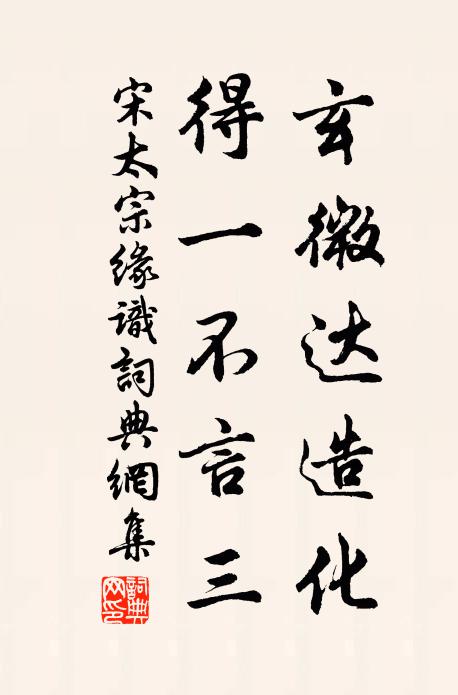 玄微达造化
得一不言三
宋太宗缘識詞典網集
詞典网印